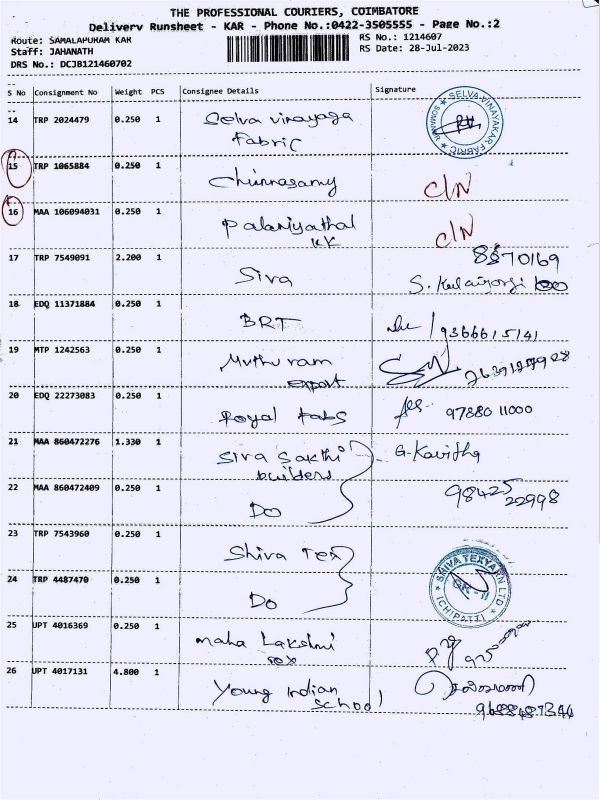 THE PROFESSIONAL COURIERS, COIMBATORE
Delivery Runsheet - KAR - Phone No.:0422-3505555 - Page No.:2
Route: SAMALAPURAM KAR
RS No.: 1214607
Staff: JAHANATH
RS Date: 28-Jul-2023
DRS No.: DCJB121460702
S No Consignment No Weight PCS Consignee Details Signature
14 TRP 2024479 0.250 1 Selva vinayaga
Fabric
SELVA VINAYAKAR FABRIC
15 TRP 1065884 0.250 1 Chinnasamy C/N
16 MAA 106094031 0.250 1 Palaniyathal C/N
KK
17 TRP 7549091 2.200 1 Siva
18 EDQ 11371884 0.250 1 BRT 9366615141
19 MTP 1242563 0.250 1 Muthu ram
export
20 EDQ 22273083 0.250 1 Royal Fabs 97880 11000
21 MAA 860472276 1.330 1 Siva Sakthi G. Kavitha
builders
22 MAA 860472409 0.250 1 Do 98425
22998
23 TRP 7543960 0.250 1 Shiva Tex
24 TRP 4487470 0.250 1 Do
SHIVA TEXYARN LTD
ICHIPATTI
25 UPT 4016369 0.250 1 Maha Lakshmi
Tex
26 UPT 4017131 4.800 1 Young Indian
School